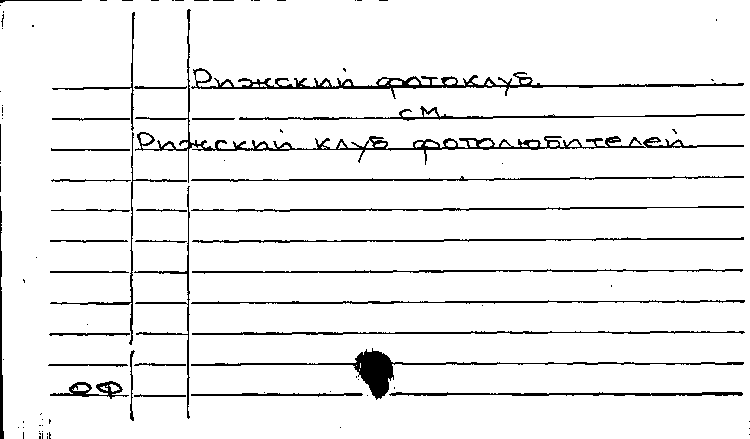 Рижский фотоклуб.
см.
Рижский клуб фотолюбителей
ОФ